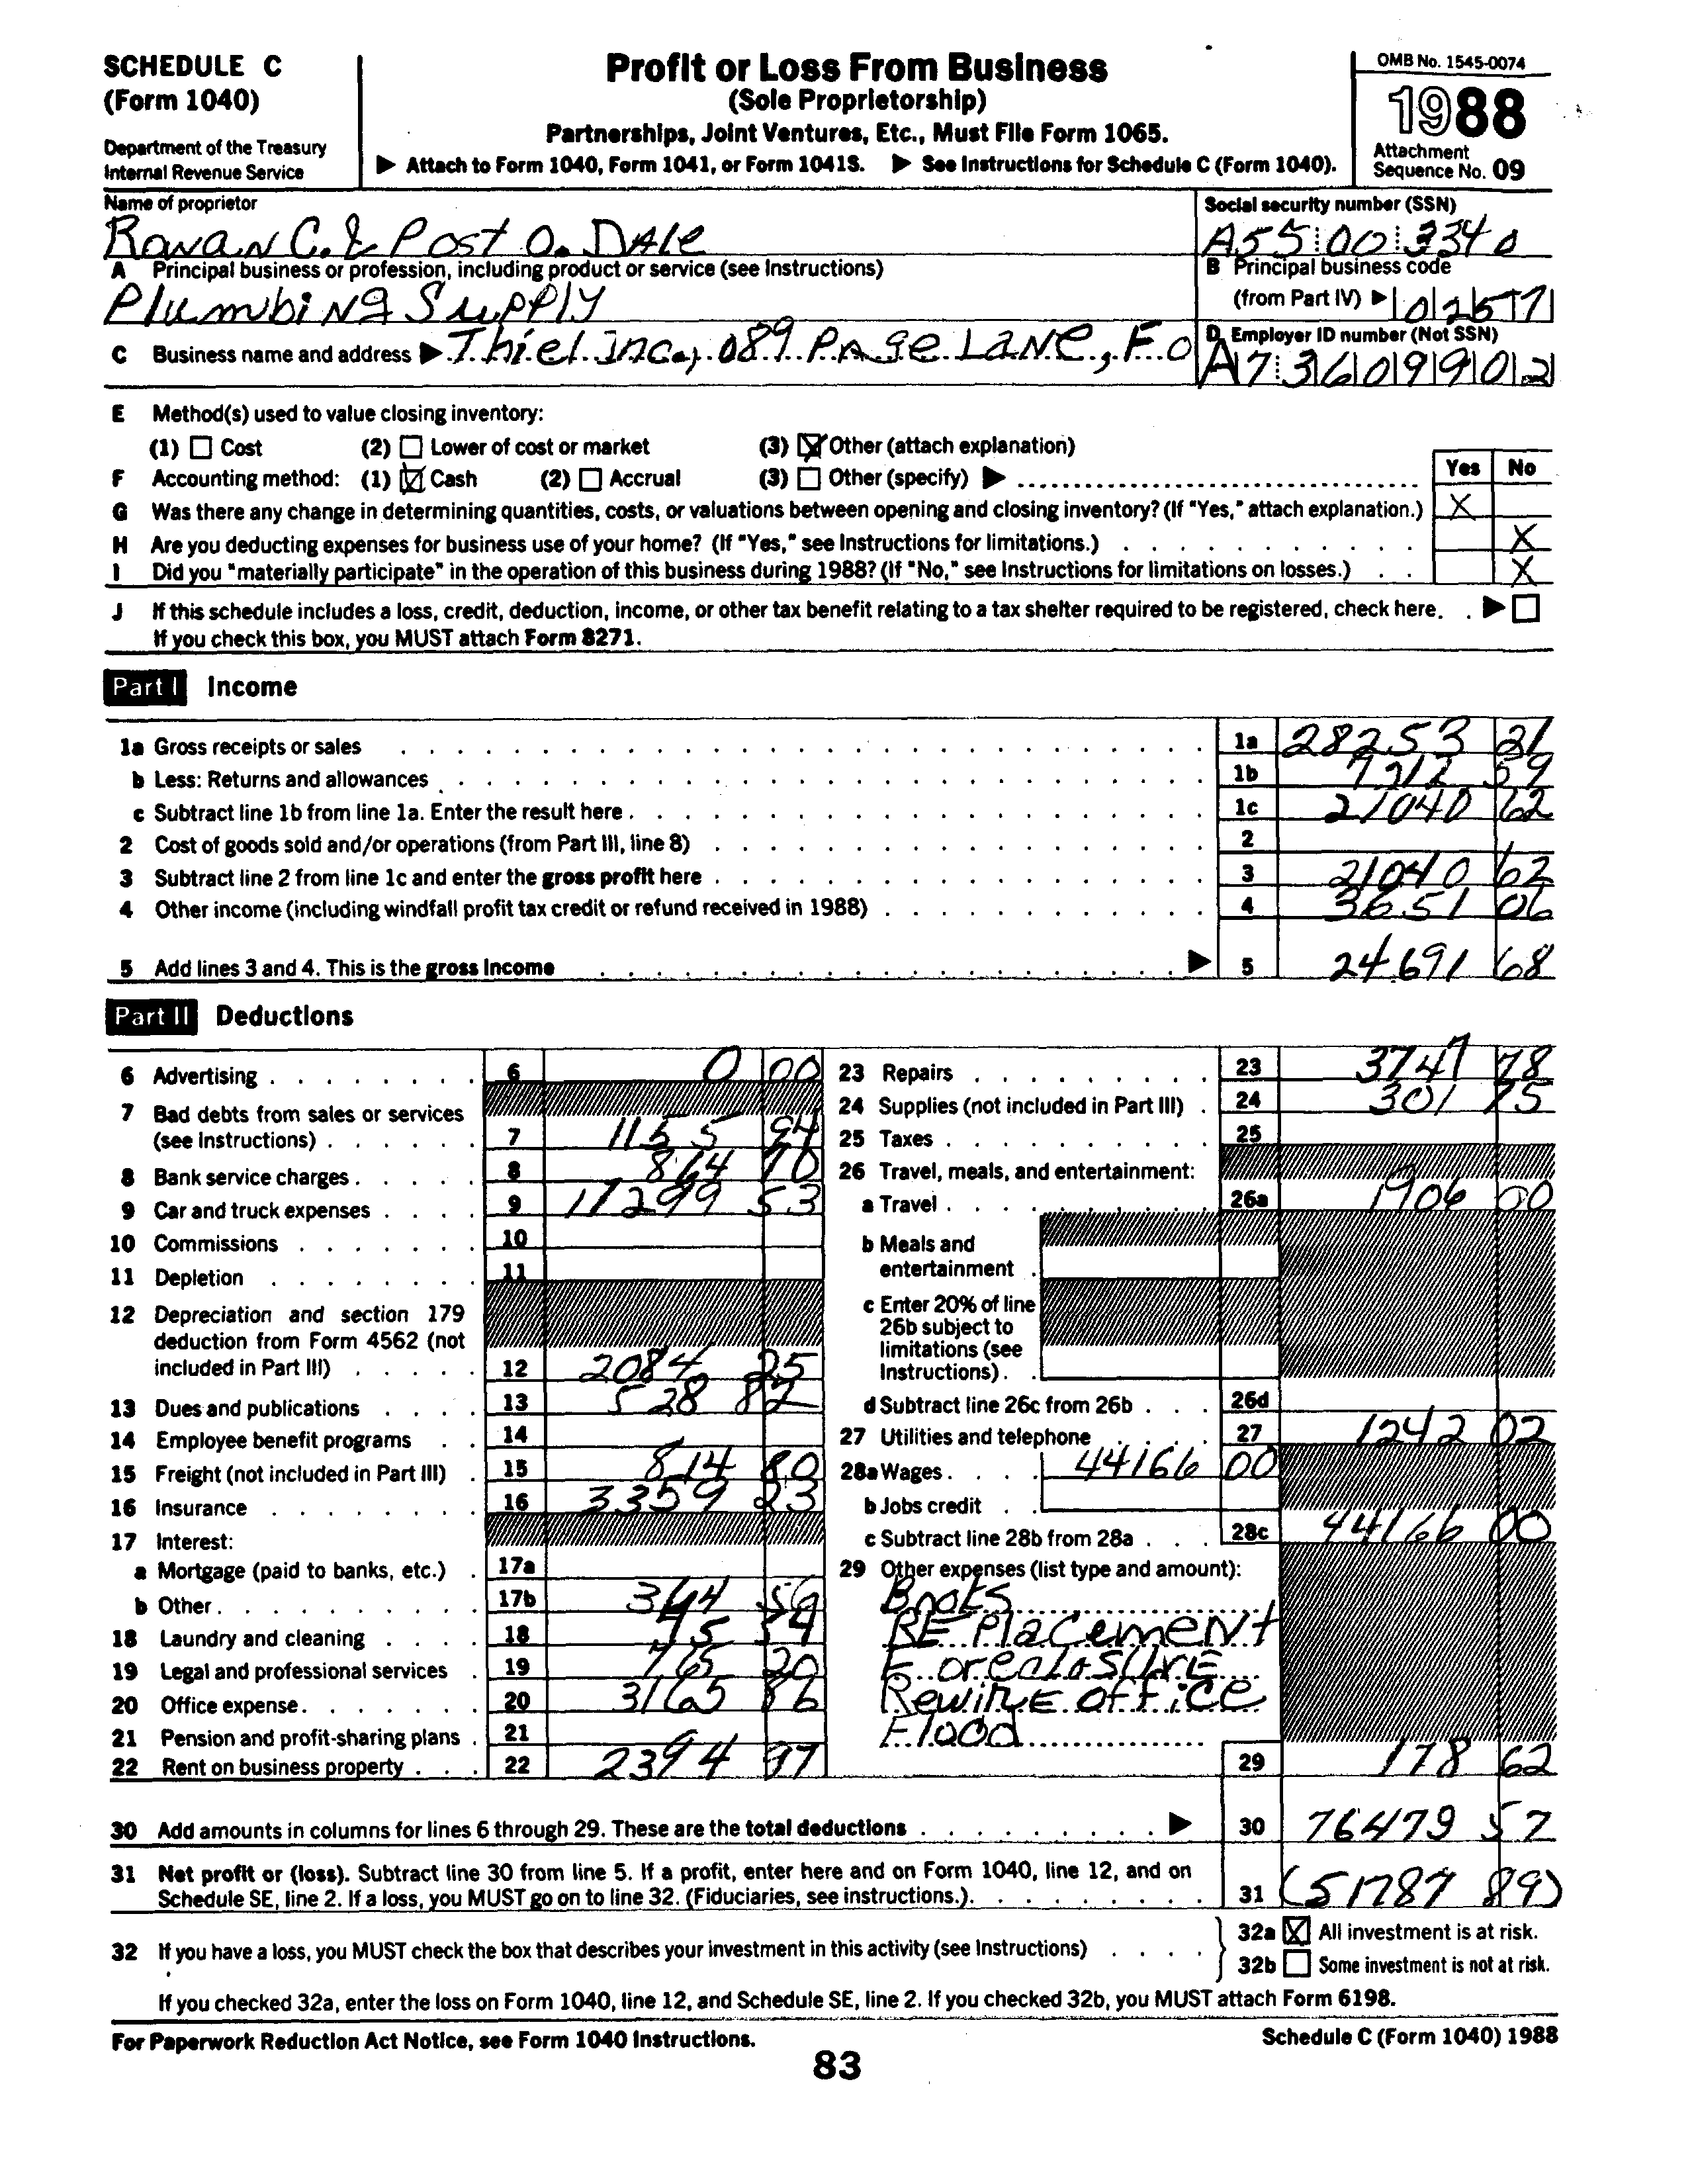 SCHEDULE C
(Form 1040)
Department of the Treasury
Internal Revenue Service
Profit or Loss From Business
(Sole Proprietorship)
Partnerships, Joint Ventures, Etc., Must File Form 1065.
▶ Attach to Form 1040, Form 1041, or Form 1041S. ▶ See Instructions for Schedule C (Form 1040).
OMB No. 1545-0074
1988
Attachment
Sequence No. 09
Name of proprietor
Rowan C. & Post O. Dale
Social security number (SSN)
A55 00 3340
A Principal business or profession, including product or service (see Instructions)
Plumbing Supply
B Principal business code
(from Part IV) ▶ 0257
C Business name and address ▶ Thiel Inc., 089 Page Lane, Fo
D Employer ID number (Not SSN)
A7 3609902
E Method(s) used to value closing inventory:
(1) Cost (2) Lower of cost or market (3) X Other (attach explanation)
F Accounting method: (1) X Cash (2) Accrual (3) Other (specify) ▶
Yes No
G Was there any change in determining quantities, costs, or valuations between opening and closing inventory? (If "Yes," attach explanation.) X
H Are you deducting expenses for business use of your home? (If "Yes," see Instructions for limitations.) X
I Did you "materially participate" in the operation of this business during 1988? (If "No," see Instructions for limitations on losses.) X
J If this schedule includes a loss, credit, deduction, income, or other tax benefit relating to a tax shelter required to be registered, check here. ▶
If you check this box, you MUST attach Form 8271.
Part I Income
1a Gross receipts or sales 1a 28253 21
b Less: Returns and allowances 1b 7212 59
c Subtract line 1b from line 1a. Enter the result here 1c 21040 62
2 Cost of goods sold and/or operations (from Part III, line 8) 2
3 Subtract line 2 from line 1c and enter the gross profit here 3 21040 62
4 Other income (including windfall profit tax credit or refund received in 1988) 4 3651 06
5 Add lines 3 and 4. This is the gross income ▶ 5 24691 68
Part II Deductions
6 Advertising 6 0 00
7 Bad debts from sales or services
(see Instructions) 7 1155 94
8 Bank service charges 8 864 70
9 Car and truck expenses 9 11299 53
10 Commissions 10
11 Depletion 11
12 Depreciation and section 179
deduction from Form 4562 (not
included in Part III) 12 2084 25
13 Dues and publications 13 528 82
14 Employee benefit programs 14
15 Freight (not included in Part III) 15 814 80
16 Insurance 16 3359 23
17 Interest:
a Mortgage (paid to banks, etc.) 17a
b Other 17b 344
18 Laundry and cleaning 18
19 Legal and professional services 19 765 20
20 Office expense 20 3165 86
21 Pension and profit-sharing plans 21
22 Rent on business property 22 2394 97
23 Repairs 23 3747 78
24 Supplies (not included in Part III) 24 301 75
25 Taxes 25
26 Travel, meals, and entertainment:
a Travel 26a 1906 00
b Meals and
entertainment
c Enter 20% of line
26b subject to
limitations (see
Instructions)
d Subtract line 26c from 26b 26d
27 Utilities and telephone 27 1242 02
28a Wages 44166 00
b Jobs credit
c Subtract line 28b from 28a 28c 44166 00
29 Other expenses (list type and amount):
Boots
REPlacement
Foreclosure
Rewire office
Flood
29 178 62
30 Add amounts in columns for lines 6 through 29. These are the total deductions ▶ 30 76479 57
31 Net profit or (loss). Subtract line 30 from line 5. If a profit, enter here and on Form 1040, line 12, and on
Schedule SE, line 2. If a loss, you MUST go on to line 32. (Fiduciaries, see instructions.) 31 (51787 89)
32 If you have a loss, you MUST check the box that describes your investment in this activity (see Instructions)
32a X All investment is at risk.
32b Some investment is not at risk.
If you checked 32a, enter the loss on Form 1040, line 12, and Schedule SE, line 2. If you checked 32b, you MUST attach Form 6198.
For Paperwork Reduction Act Notice, see Form 1040 Instructions.
Schedule C (Form 1040) 1988
83